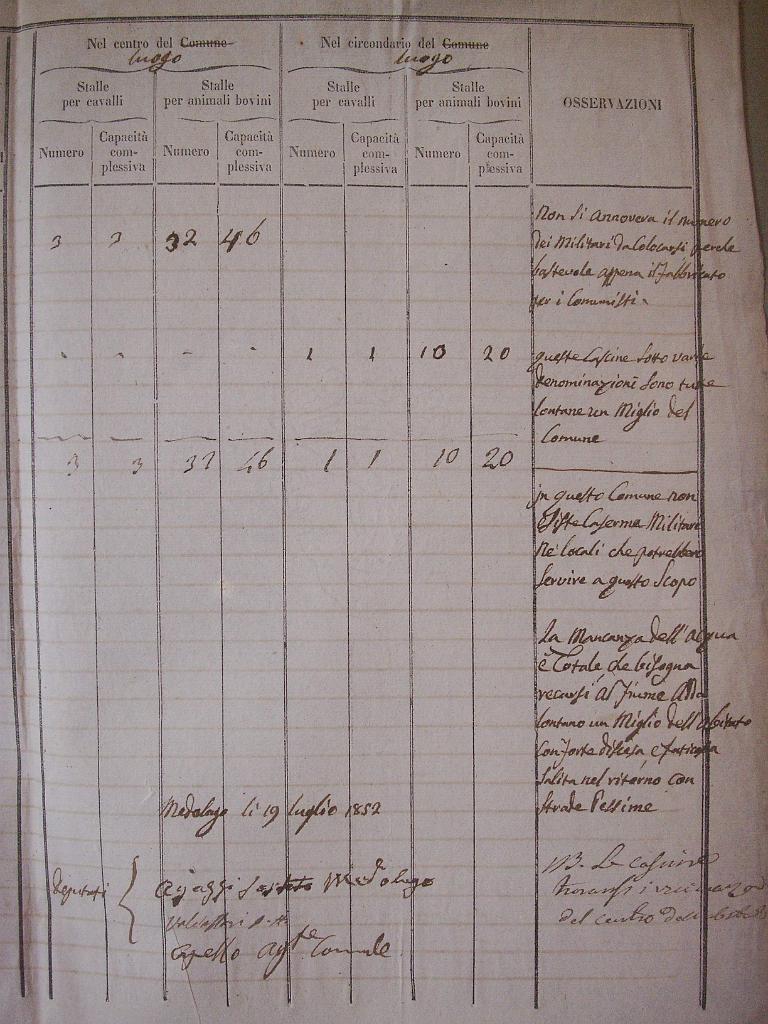 Nel centro del Comune
luogo
Nel circondario del Comune
luogo
Stalle
per cavalli
Stalle
per animali bovini
Stalle
per cavalli
Stalle
per animali bovini
OSSERVAZIONI
Numero
Capacità
com-
plessiva
Numero
Capacità
com-
plessiva
Numero
Capacità
com-
plessiva
Numero
Capacità
com-
plessiva
3 3 32 46
Non si annovera il numero
dei Militari da Colocarsi perche
bastevole appena il fabbricato
per i Comunisti.
1 1 10 20
queste Cascine sotto varie
denominazioni sono tutte
lontane un Miglio del
Comune
3 3 32 46 1 1 10 20
in questo Comune non
esiste Caserma Militare
Ne locali che potrebbero
servire a questo Scopo
La Mancanza dell'Acqua
è Totale che bisogna
recarsi al fiume Adda
lontano un Miglio dell'abitato
con forte discesa e faticosa
salita nel ritorno con
strade Pessime
Medolago li 19 luglio 1852
Deputati
Medolago
NB. Le cascine
trovansi
del centro dell'